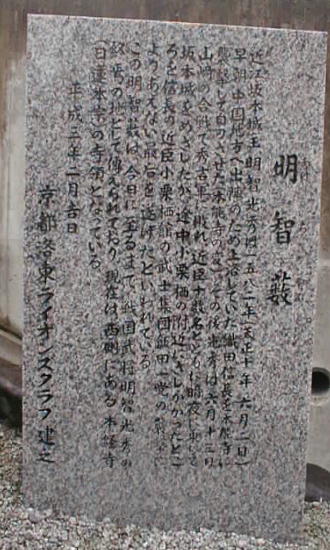 明智藪
近江坂本城主明智光秀は一五八二年(天正十年六月二日)
早朝中国地方へ出陣のため上洛していた織田信長を本能寺に
襲撃して自刃させた(本能寺の変)その後光秀は六月十三日
山崎の合戦で秀吉軍に敗れ近臣十数名と
坂本城をめざしたが、途中小栗栖の附近にさしかかったとこ
ろを信長の近臣小栗栖館の武士集団飯田一党の
あえない最后を遂げたといわれている。
この明智藪は、今日に至るまで、戦国武将明智光秀の
終焉の地として伝えられており、現在は西側にある本経寺
(日蓮本宗)の寺領となっている。
平成三年一月吉日
京都洛東ライオンズクラブ建之